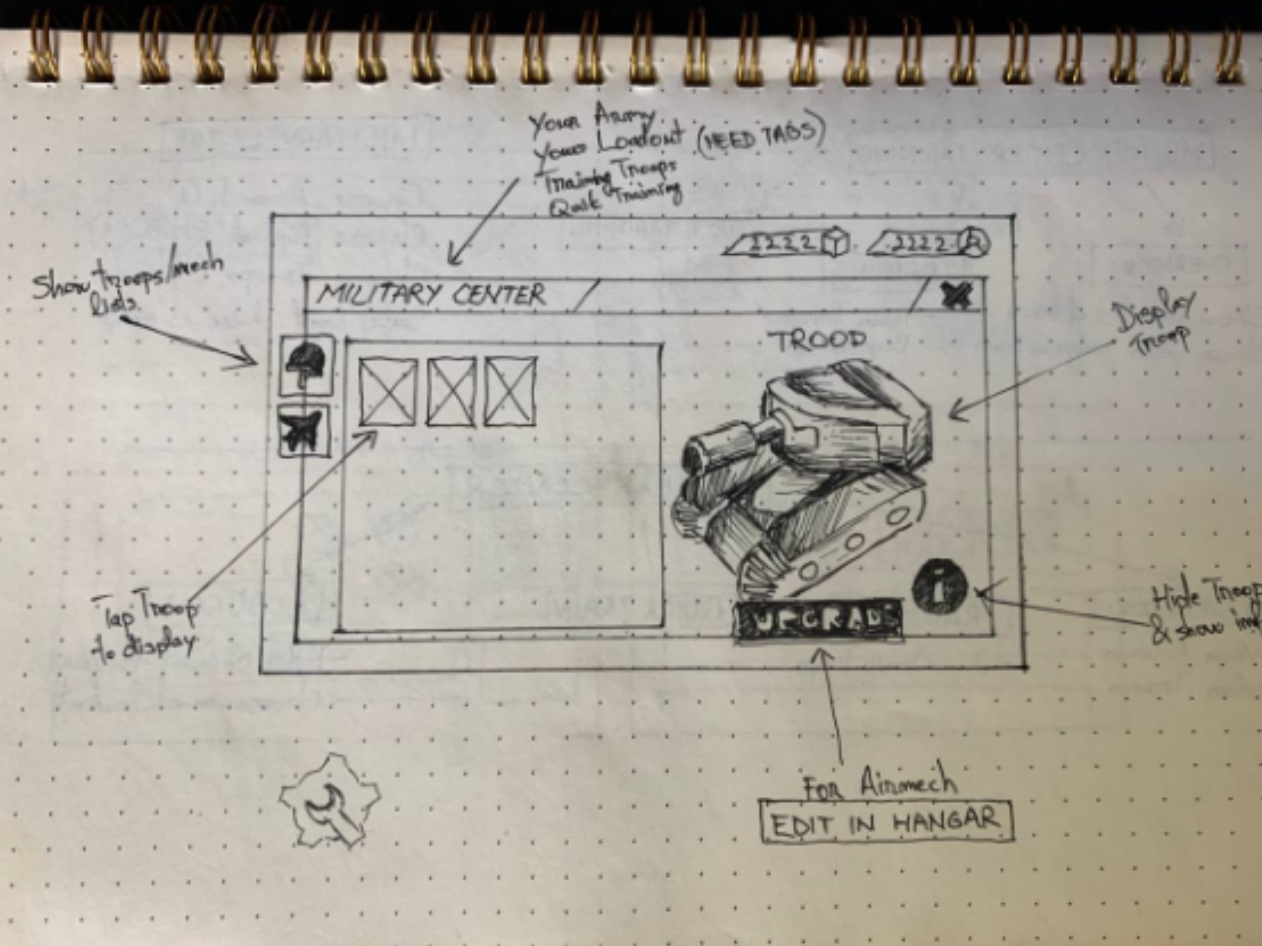 Your Army
Your Loadout (NEED TABS)
Training Troops
Quik Training
2222
2222
Show troops/mech
lists
MILITARY CENTER
TROOP
Display
Troop
Tap Troop
to display
i
UPGRADE
Hide Troop
& show inf
For Airmech
EDIT IN HANGAR